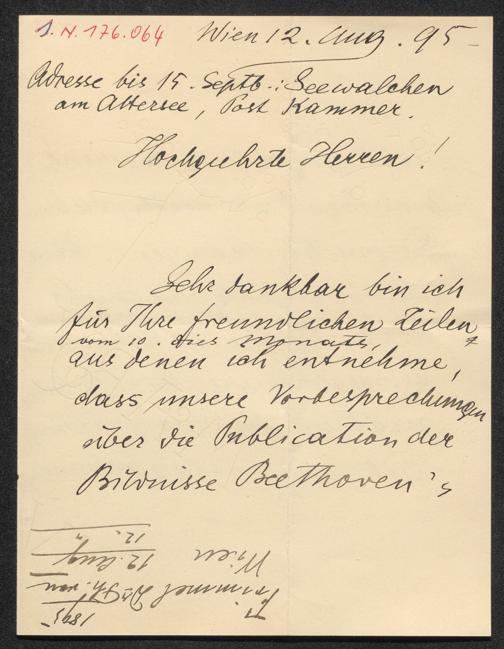 I. N. 176.064
Wien 12. Aug. 95
Adresse bis 15. Septb.: Seewalchen
am Attersee, Post Kammer.
Hochgeehrte Herren!
Sehr dankbar bin ich
für Ihre freundlichen Zeilen
vom 10. dies Monats,
aus denen ich entnehme,
dass unsere Vorbesprechungen
über die Publication der
Bildnisse Beethoven's
1895
Frimmel Dr Th. von
Wien
12. Aug
12.